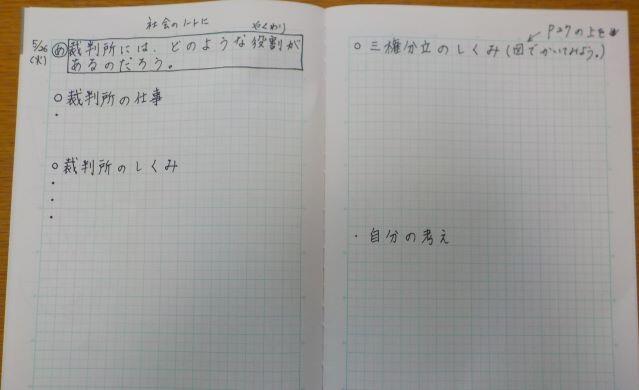 社会のノートに
やくわり
5/26
(水)
め 裁判所には、どのような役割が
あるのだろう。
○裁判所の仕事
・
○裁判所のしくみ
・
・
・
P27の上を
○三権分立のしくみ(図でかいてみよう。)
・自分の考え